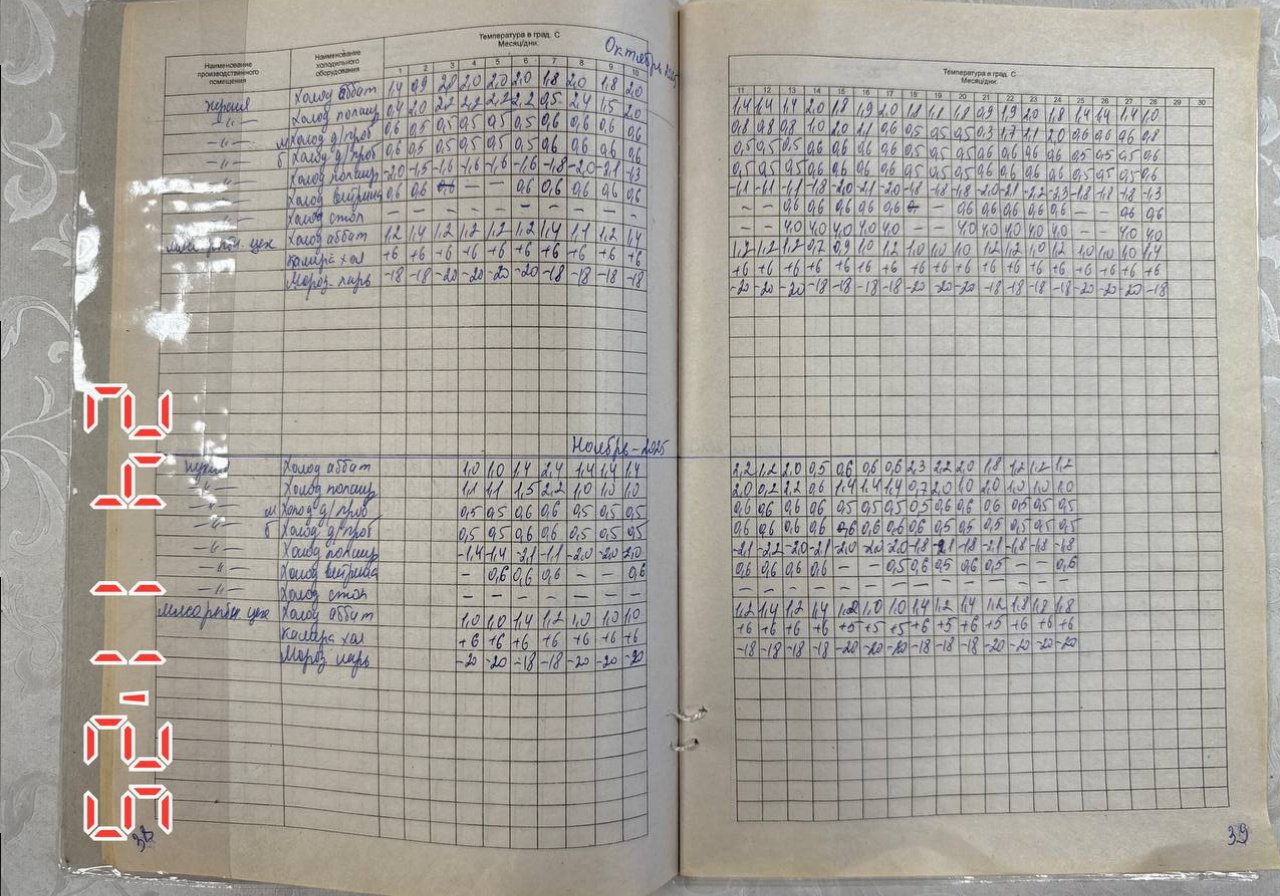 Октябрь
Наименование производственного помещения
Наименование холодильного оборудования
Температура в град. С
Месяц/дни.
1 2 3 4 5 6 7 8 9 10
Холод аббат 1,4 0,9 2,8 2,0 2,0 2,0 1,8 2,0 1,8 2,0
-"- 0,4 2,0 2,2 2,2 2,2 2,2 0,5 2,4 1,5 2,0
-"- м Холод д/проб 0,6 0,5 0,5 0,5 0,5 0,5 0,6 0,6 0,6 0,6
б Холод д/проб 0,6 0,5 0,5 0,5 0,5 0,5 0,6 0,6 0,6 0,6
-2,0 -1,5 -1,6 -1,6 -1,6 -1,6 -1,8 -2,0 -2,1 -1,3
Холод витрина 0,6 0,6 — — 0,6 0,6 0,6 0,6 0,6
Холод стол – – – – – – – – – –
Холод аббат 1,2 1,4 1,2 1,2 1,2 1,2 1,4 1,1 1,2 1,4
камера хол +6 +6 +6 +6 +6 +6 +6 +6 +6 +6
Мороз ларь -18 -18 -20 -20 -20 -20 -18 -18 -18 -18
Ноябрь – 2025
Холод аббат 1,0 1,0 1,4 2,4 1,4 1,4 1,4
1,1 1,1 1,5 2,2 1,0 1,0 1,0
м Холод д/проб 0,5 0,5 0,6 0,6 0,5 0,5 0,5
б Холод д/проб 0,5 0,5 0,6 0,6 0,5 0,5 0,5
-"- -1,4 -1,4 -2,1 -1,1 -2,0 -2,0 -2,0
-"- Холод витрина – 0,6 0,6 0,6 – – 0,6
-"- Холод стол – – – – – – –
Холод аббат 1,0 1,0 1,4 1,2 1,0 1,0 1,0
Камера хол +6 +6 +6 +6 +6 +6 +6
Мороз ларь -20 -20 -18 -18 -20 -20 -20
38
Температура в град. С
Месяц/дни.
11 12 13 14 15 16 17 18 19 20 21 22 23 24 25 26 27 28 29 30
1,4 1,4 1,4 2,0 1,8 1,9 2,0 1,8 1,8 1,8 0,9 1,9 2,0 1,8 1,4 1,4 1,4 1,0
0,8 0,8 0,8 1,0 2,0 2,1 0,6 0,5 0,5 0,5 0,3 1,7 1,1 2,0 0,6 0,6 0,6 0,8
0,5 0,5 0,5 0,6 0,6 0,6 0,6 0,5 0,5 0,5 0,6 0,6 0,6 0,6 0,5 0,5 0,5 0,6
0,5 0,5 0,5 0,6 0,6 0,6 0,6 0,5 0,5 0,5 0,6 0,6 0,6 0,6 0,5 0,5 0,5 0,6
-1,1 -1,1 -1,1 -1,8 -2,0 -2,1 -2,0 -1,8 -1,8 -1,8 -2,0 -2,1 -2,2 -2,3 -1,8 -1,8 -1,8 -1,3
– – 0,6 0,6 0,6 0,6 0,6 – 0,6 0,6 0,6 0,6 0,6 – – 0,6 0,6
– – 4,0 4,0 4,0 4,0 4,0 – – 4,0 4,0 4,0 4,0 4,0 – – 4,0 4,0
1,2 1,2 1,2 0,7 0,9 1,0 1,2 1,0 1,0 1,0 1,2 1,2 1,0 1,2 1,0 1,0 1,0 1,4
+6 +6 +6 +6 +6 +6 +6 +6 +6 +6 +6 +6 +6 +6 +6 +6 +6 +6
-20 -20 -20 -18 -18 -18 -18 -20 -20 -20 -18 -18 -18 -18 -20 -20 -20 -18
2,2 1,2 2,0 0,5 0,6 0,6 0,6 2,3 2,2 2,0 1,8 1,2 1,2 1,2
2,0 0,2 2,2 0,6 1,4 1,4 1,4 0,7 2,0 1,0 2,0 1,0 1,0 1,0
0,6 0,6 0,6 0,6 0,5 0,5 0,5 0,5 0,6 0,6 0,6 0,5 0,5 0,5
0,6 0,6 0,6 0,6 0,6 0,6 0,6 0,6 0,5 0,5 0,5 0,5 0,5 0,5
-2,1 -2,2 -2,0 -2,1 -2,0 -2,0 -2,0 -1,8 -2,1 -1,8 -2,1 -1,8 -1,8 -1,8
0,6 0,6 0,6 0,6 – – 0,5 0,6 0,5 0,6 0,5 – – 0,6
– – – – – – – – – – – – – –
1,2 1,4 1,2 1,4 1,2 1,0 1,0 1,4 1,2 1,4 1,2 1,8 1,8 1,8
+6 +6 +6 +6 +5 +5 +5 +6 +5 +6 +5 +6 +6 +6
-18 -18 -18 -18 -20 -20 -20 -18 -18 -18 -20 -20 -20 -20
39